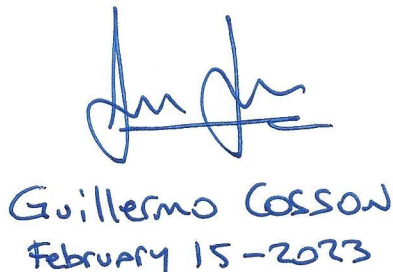 Guillermo Cosson
February 15-2023